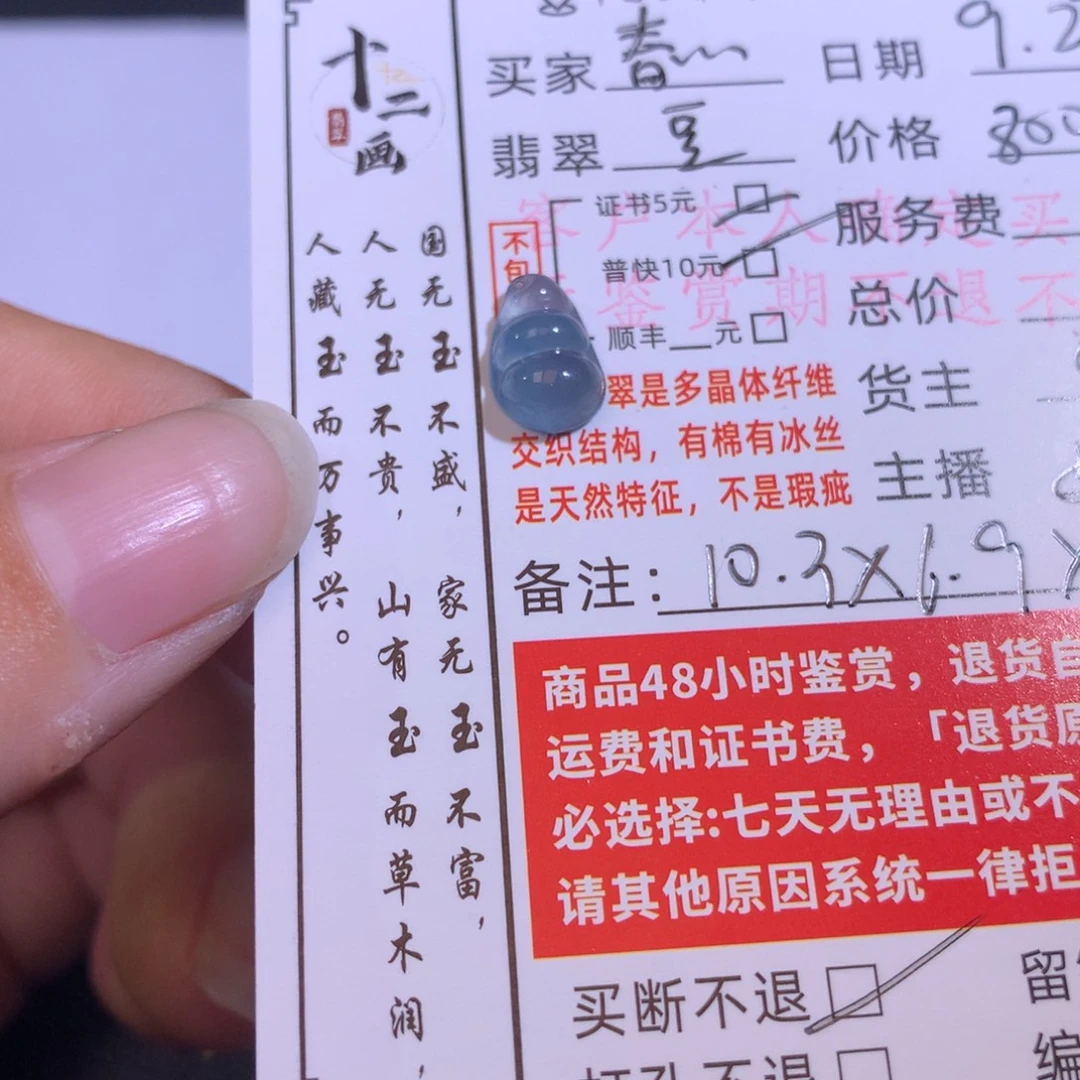 十二画
翡翠
国无玉不盛，家无玉不富，
人无玉不贵，山有玉而草木润，
人藏玉而万事兴。
买家 春
日期 9.2
翡翠 豆
价格 800
证书5元
服务费
不包
普快10元
总价
顺丰__元
客户本人确定买
鉴赏期不退不
翠是多晶体纤维
交织结构，有棉有冰丝
是天然特征，不是瑕疵
货主
主播
备注：10.3×6.9×
商品48小时鉴赏，退货自
运费和证书费，「退货原
必选择:七天无理由或不
请其他原因系统一律拒
买断不退
留
打孔不退
编